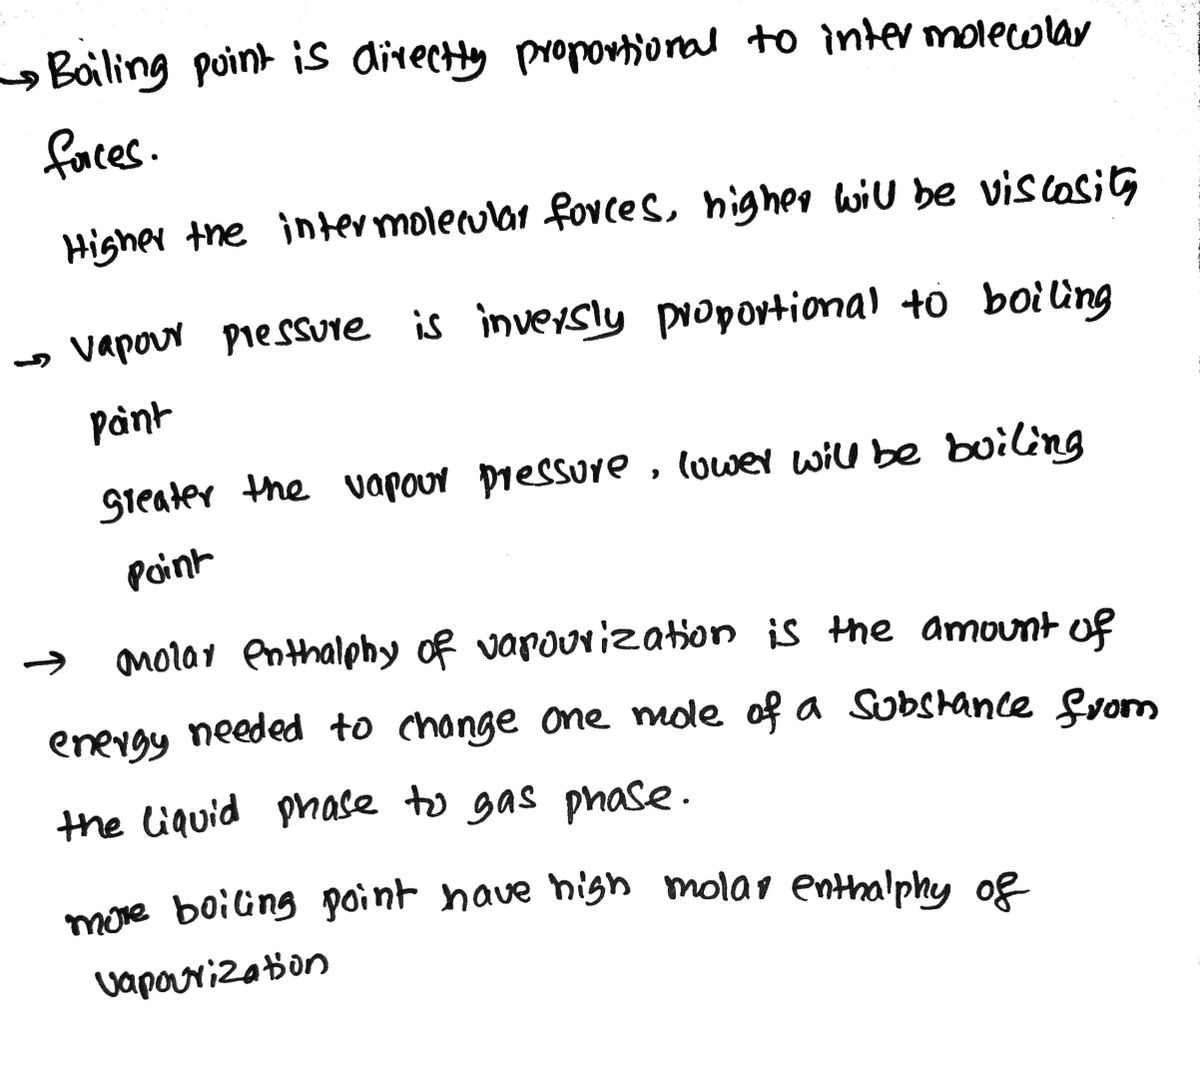 → Boiling point is directly proportional to intermolecular
forces.
Higher the intermolecular forces, higher will be viscosity
→ vapour pressure is inversly proportional to boiling
point
greater the vapour pressure, lower will be boiling
point
→ molar enthalphy of vapourization is the amount of
energy needed to change one mole of a substance from
the liquid phase to gas phase.
more boiling point have high molar enthalphy of
vapourization